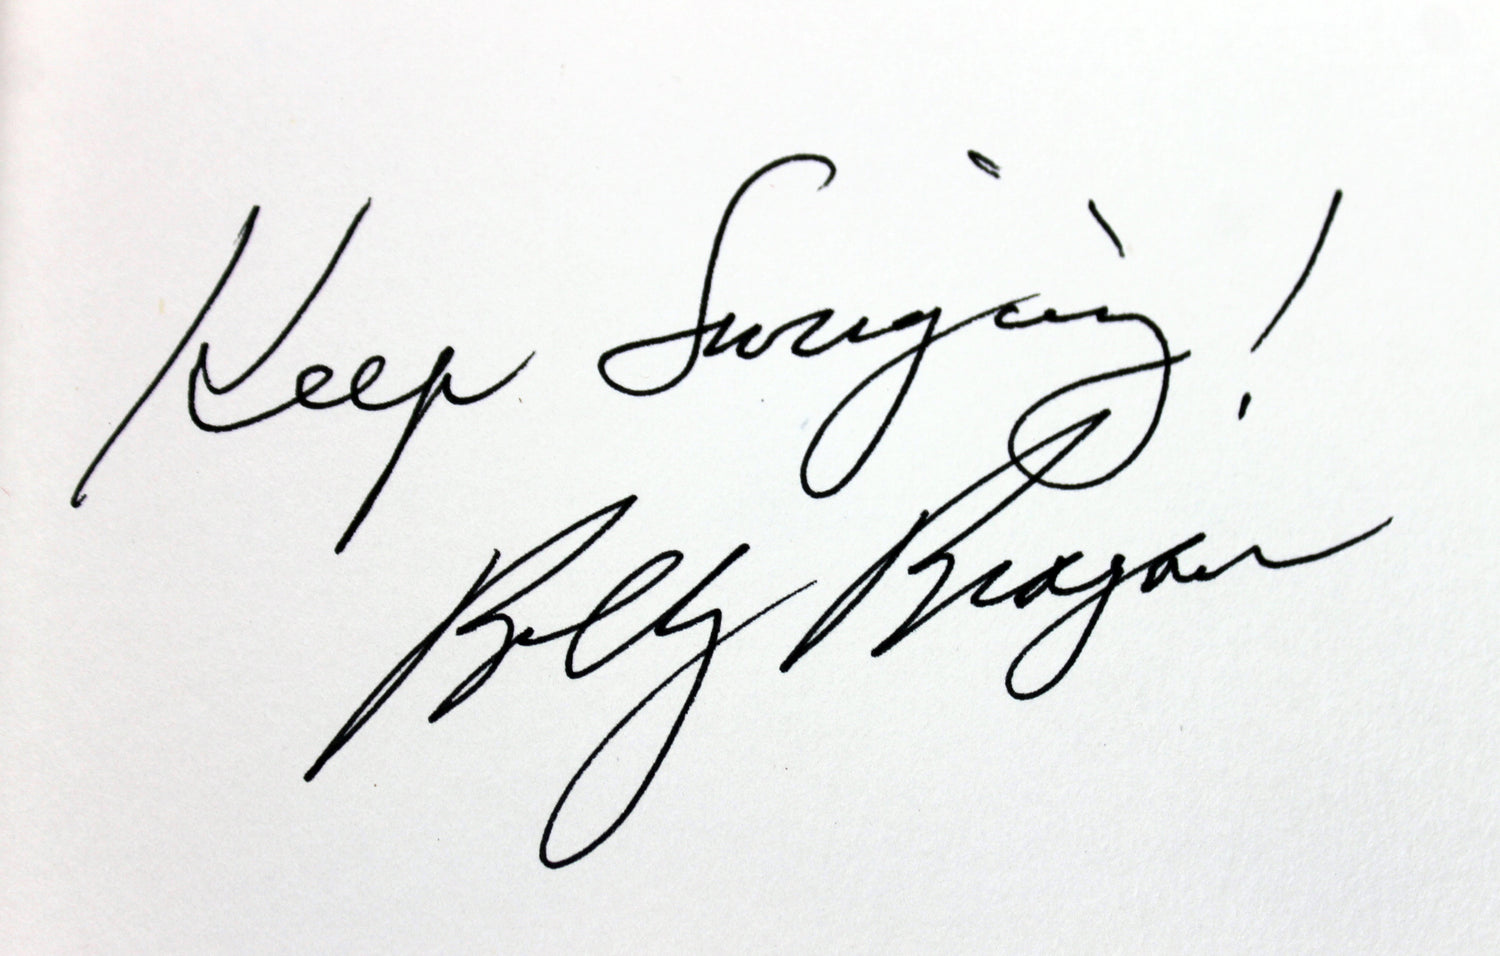 Keep Swinging!
Billy Reagan